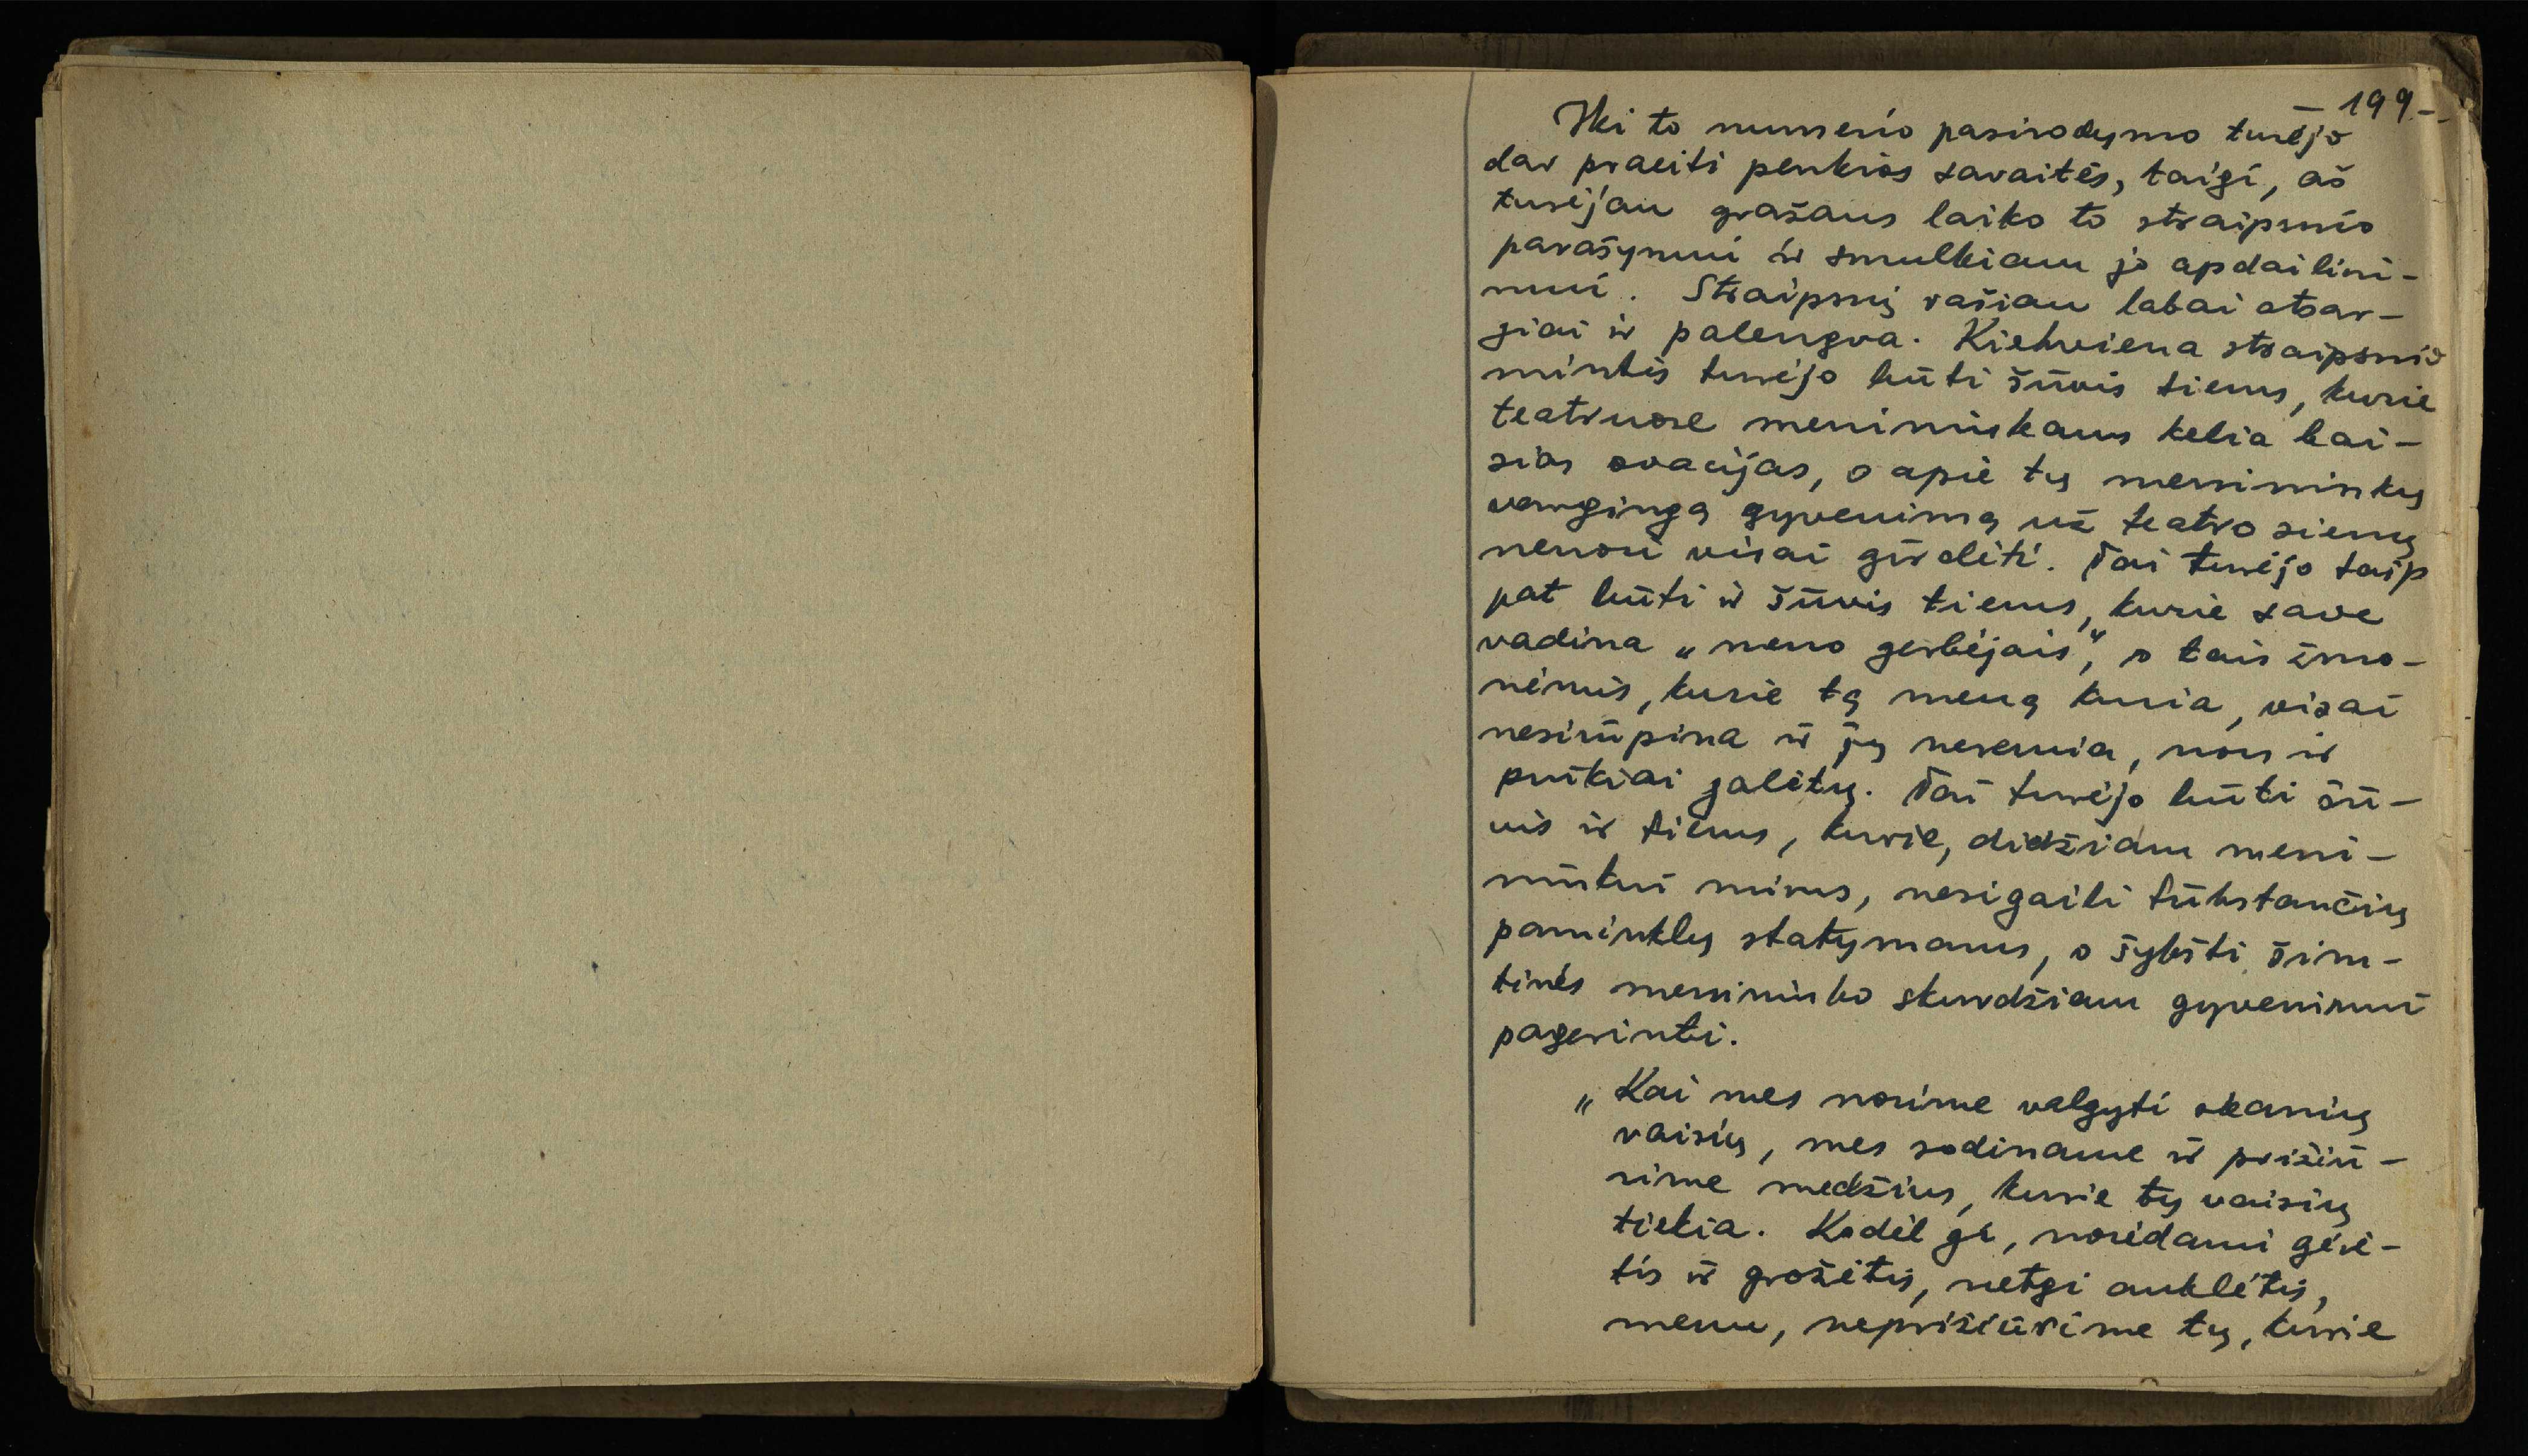 – 199 –
Iki to numerio pasirodymo turėjo
dar praeiti penkios savaitės, taigi, aš
turėjau gražaus laiko to straipsnio
parašymui ir smulkiam jo apdailini-
mui. Straipsnį rašiau labai atsar-
giai ir palengva. Kiekviena straipsnio
mintis turėjo būti šūvis tiems, kurie
teatruose menininkams kelia bai-
sias ovacijas, o apie tų menininkų
vargingą gyvenimą už teatro sienų
nenori visai girdėti. Tai turėjo taip
pat būti ir šūvis tiems, kurie save
vadina „meno gerbėjais“, o tais žmo-
nėmis, kurie tą meną kuria, visai
nesirūpina ir jų neremia, nors ir
puikiai galėtų. Tai turėjo būti šū-
vis ir tiems, kurie, didžiam meni-
ninkui mirus, nesigaili tūkstančių
paminklų statymams, o šykšti šim-
tinės menininko skurdžiam gyvenimui
pagerinti.
„Kai mes norime valgyti skanių
vaisių, mes sodiname ir prižiū-
rime medžius, kurie tų vaisių
tiekia. Kodėl gi, norėdami gėrė-
tis ir grožėtis, netgi auklėtis,
menu, neprižiūrime tų, kurie